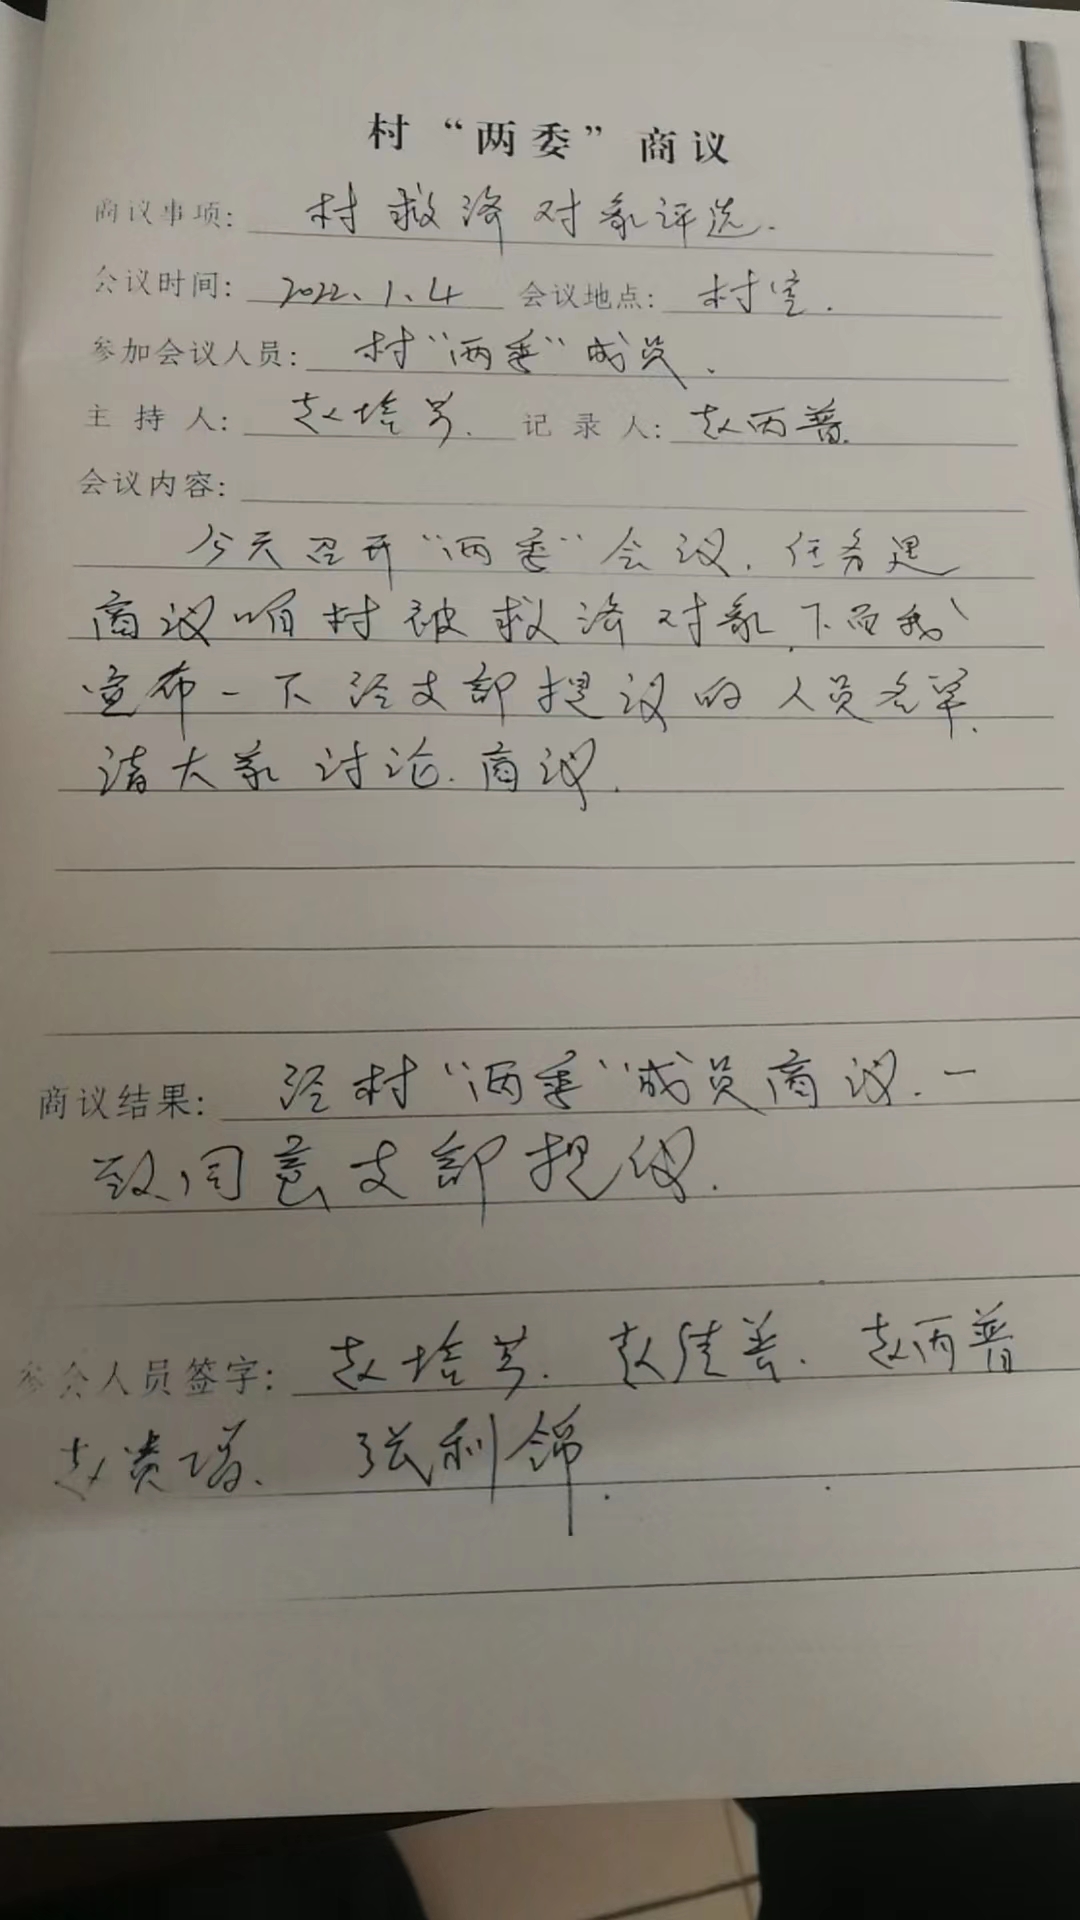 村“两委”商议
商议事项: 村救济对象评选.
会议时间: 2022、1、4 会议地点: 村室.
参加会议人员: 村“两委”成员.
主持人: 赵培芳. 记录人: 赵丙普.
会议内容:
今天召开“两委”会议.任务是
商议咱村被救济对象,下面我
宣布一下经支部提议的人员名单.
请大家讨论.商议.
商议结果: 经村“两委”成员商议.一
致同意支部提议.
参会人员签字: 赵培芳. 赵佳善. 赵丙普
赵贵增、 张利锦.